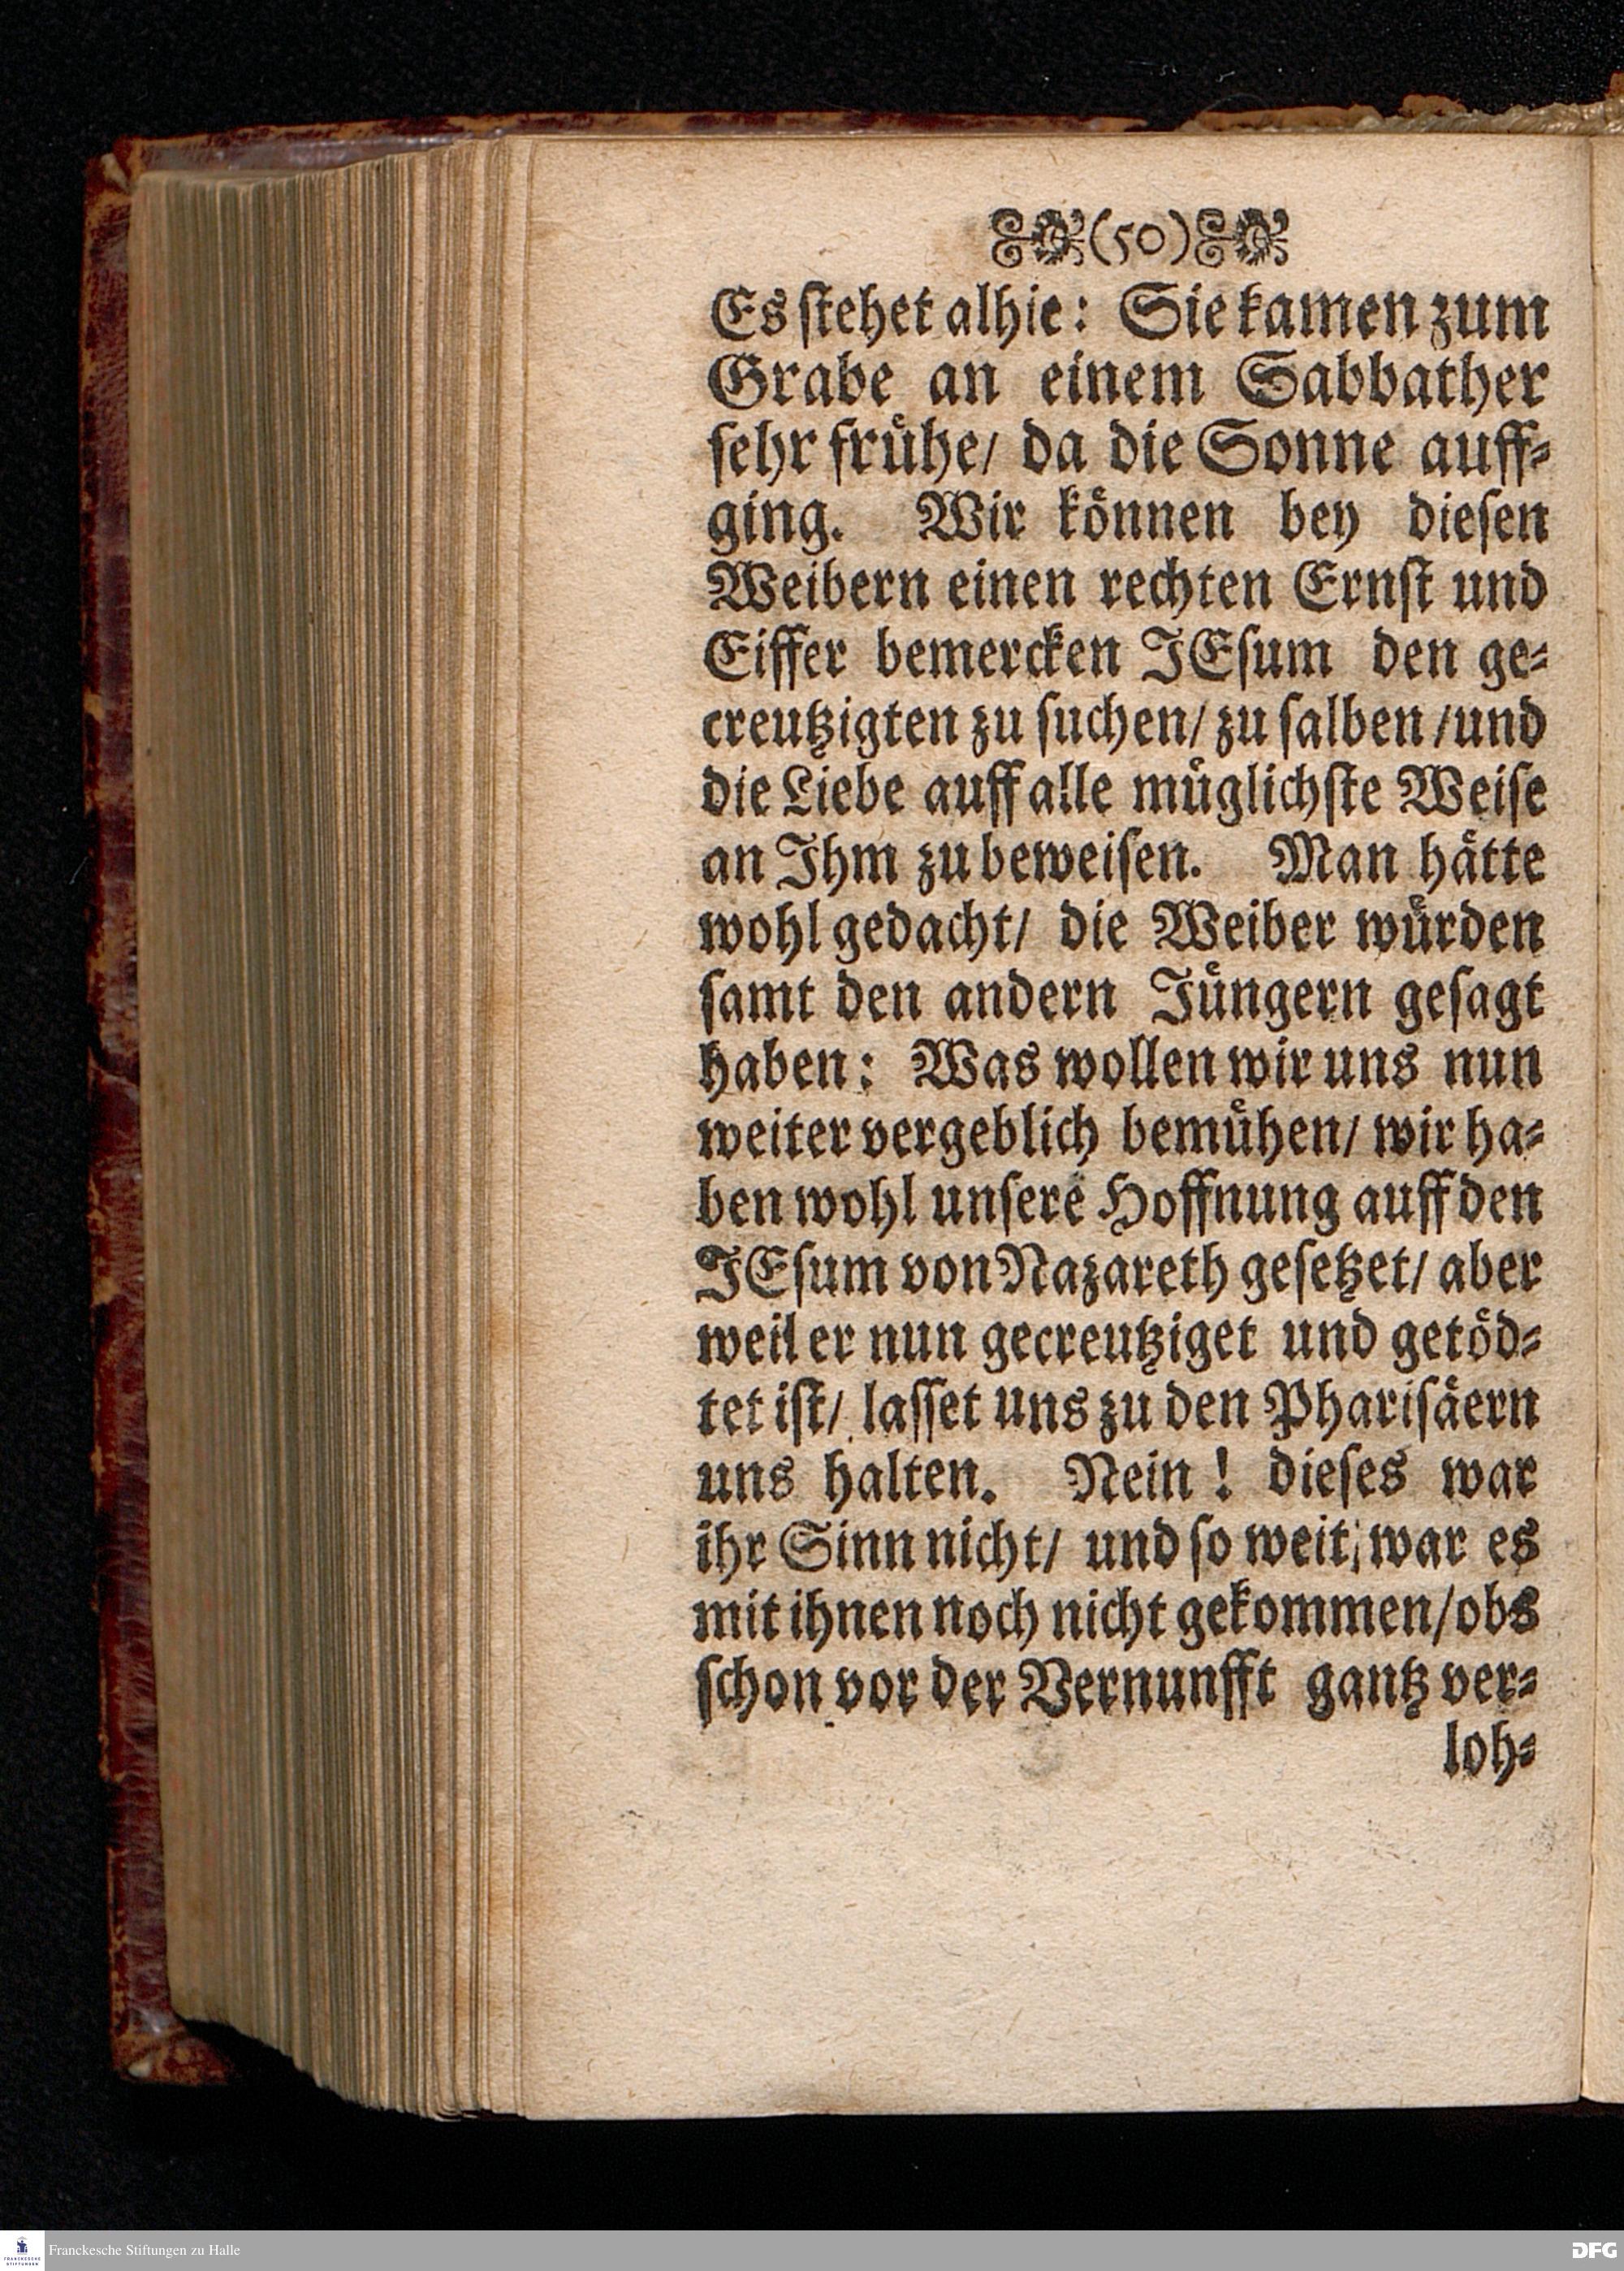 (50)
Es ſtehet alhie: Sie kamen zum
Grabe an einem Sabbather
ſehr fruͤhe/ da die Sonne auff-
ging. Wir koͤnnen bey dieſen
Weibern einen rechten Ernſt und
Eiffer bemercken JEſum den ge-
creutzigten zu ſuchen/ zu ſalben /und
die Liebe auff alle muͤglichſte Weiſe
an Ihm zu beweiſen. Man haͤtte
wohl gedacht/ die Weiber wuͤrden
ſamt den andern Juͤngern geſagt
haben: Was wollen wir uns nun
weiter vergeblich bemuͤhen/ wir ha-
ben wohl unſere Hoffnung auff den
JEſum von Nazareth geſetzet/ aber
weil er nun gecreutziget und getoͤd-
tet iſt/ laſſet uns zu den Phariſaͤern
uns halten. Nein! dieſes war
ihr Sinn nicht/ und ſo weit war es
mit ihnen noch nicht gekommen/obs
ſchon vor der Vernunfft gantz ver-
loh-
FRANCKESCHE STIFTUNGEN
Franckesche Stiftungen zu Halle
DFG